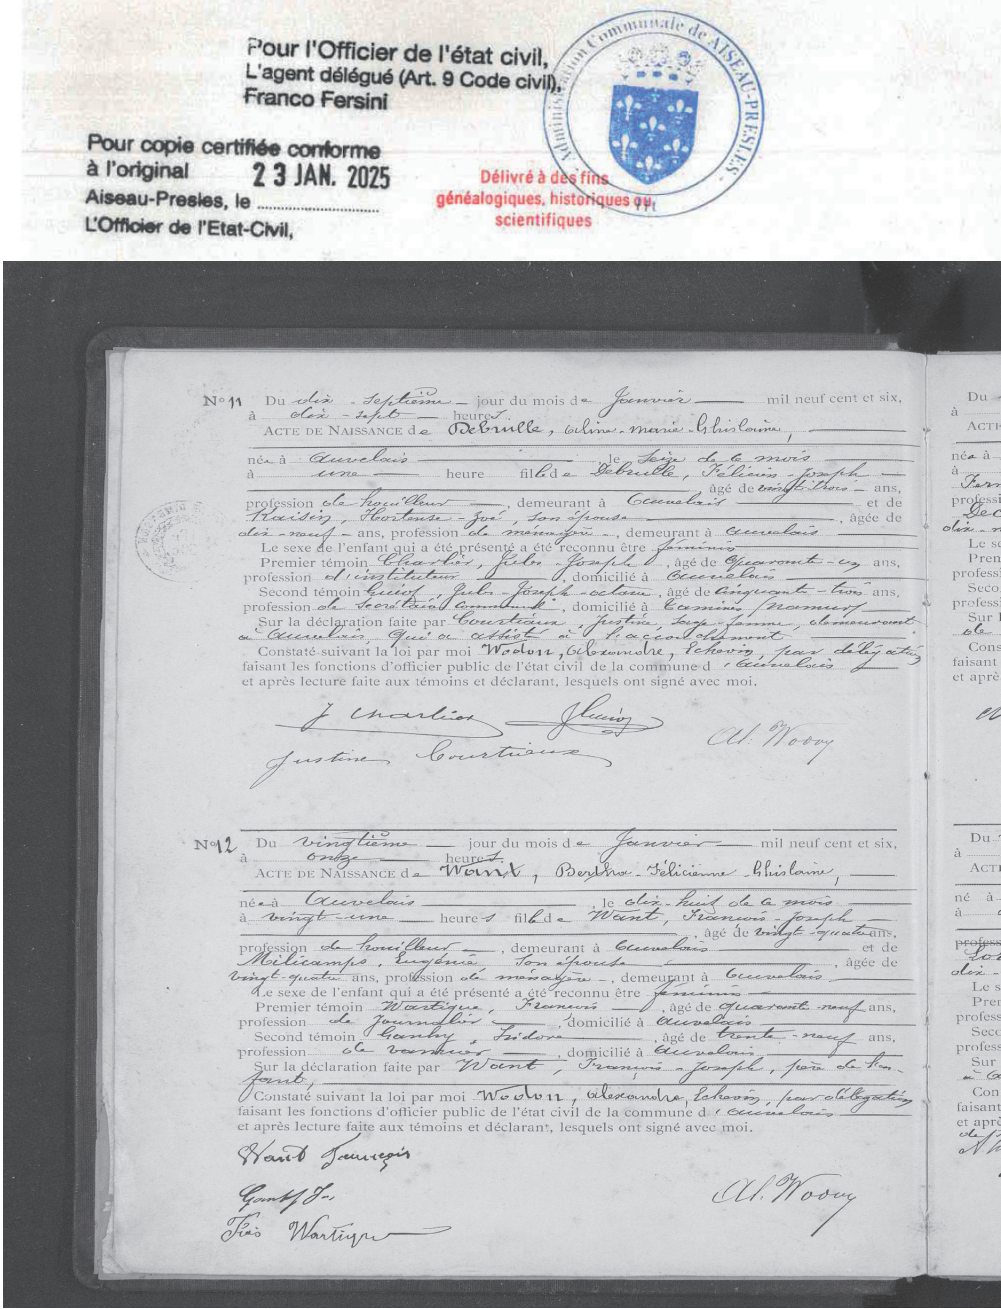 Pour l'Officier de l'état civil,
L'agent délégué (Art. 9 Code civil),
Franco Fersini
Administration Communale de AISEAU-PRESLES -
Pour copie certifiée conforme
à l'original
23 JAN. 2025
Aiseau-Presles, le
L'Officier de l'Etat-Civil,
Délivré à des fins
généalogiques, historiques ou
scientifiques
N° 11 Du dix-septième jour du mois de Janvier mil neuf cent et six,
à dix-sept heures.
ACTE DE NAISSANCE de Debruille, Aline-Marie-Ghislaine,
née à Auvelais, le seize de ce mois
à une heure fille de Debruille, Félicien-Joseph
âgé de vingt-trois ans,
profession de houilleur, demeurant à Auvelais et de
Kaisin, Hortense-Zoé, son épouse, âgée de
dix-neuf ans, profession de ménagère, demeurant à Auvelais
Le sexe de l'enfant qui a été présenté a été reconnu être féminin
Premier témoin Charlier, Jules-Joseph, âgé de quarante-un ans,
profession d'instituteur, domicilié à Auvelais
Second témoin Jules-Joseph-Octave, âgé de cinquante-trois ans,
profession de Secrétaire Communal, domicilié à Tamines (Namur)
Sur la déclaration faite par Courtiaux, Justine, sage-femme, demeurant
à Auvelais, qui a assisté à l'accouchement
Constaté suivant la loi par moi Wodon, Alexandre, Echevin, par délégation
faisant les fonctions d'officier public de l'état civil de la commune d'Auvelais
et après lecture faite aux témoins et déclarant, lesquels ont signé avec moi.
J Charlier
Justine Courtiaux
Al. Wodon
N° 12 Du vingtième jour du mois de Janvier mil neuf cent et six,
à onze heures.
ACTE DE NAISSANCE de Want, Bertha-Félicienne Ghislaine,
née à Auvelais, le dix-huit de ce mois
à vingt-une heures fille de Want, François-Joseph
âgé de vingt-quatre ans,
profession de houilleur, demeurant à Auvelais et de
Milicamps, Eugénie son épouse, âgée de
vingt-quatre ans, profession de ménagère, demeurant à Auvelais
Le sexe de l'enfant qui a été présenté a été reconnu être féminin
Premier témoin Wartique, François, âgé de quarante-neuf ans,
profession de journalier, domicilié à Auvelais
Second témoin Isidore, âgé de trente-neuf ans,
profession de vannier, domicilié à Auvelais
Sur la déclaration faite par Want, François-Joseph, père de l'en-
fant,
Constaté suivant la loi par moi Wodon, Alexandre, Echevin, par délégation
faisant les fonctions d'officier public de l'état civil de la commune d'Auvelais
et après lecture faite aux témoins et déclarant, lesquels ont signé avec moi.
Want François
Al. Wodon
Wartique